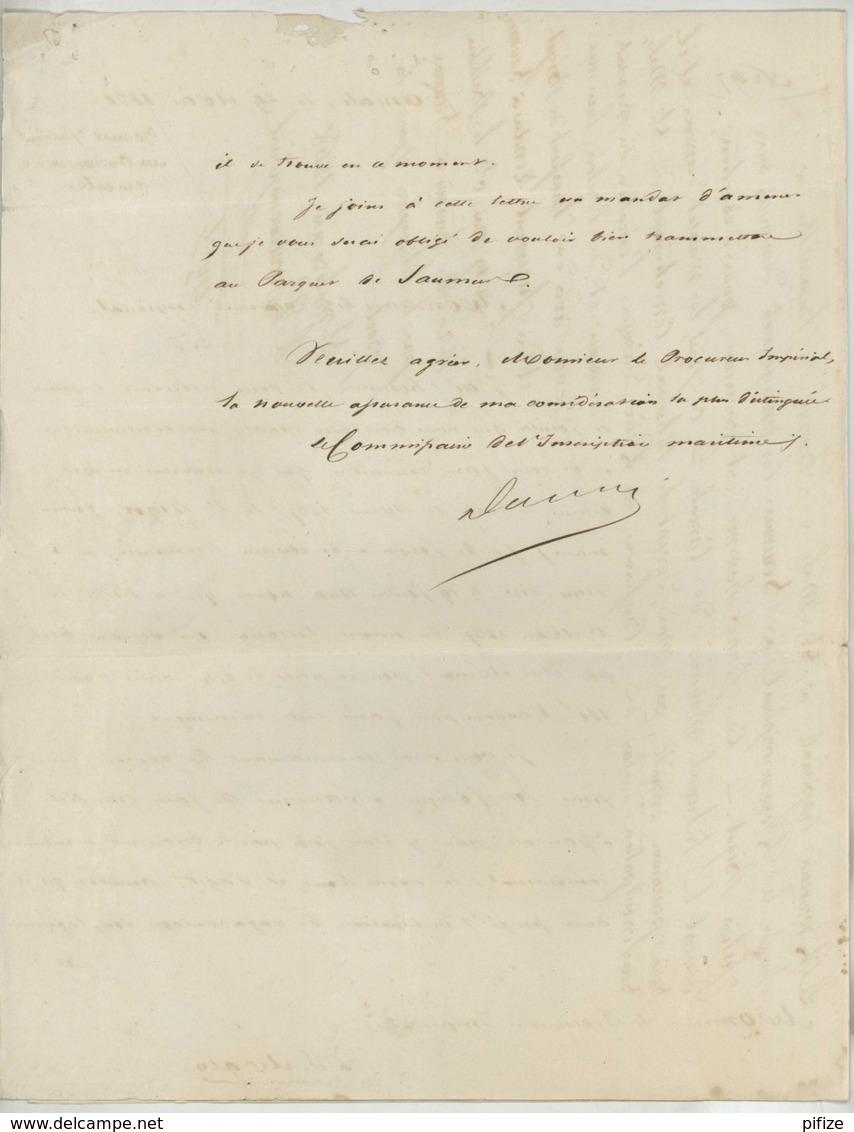 il se trouve en ce moment.
Je joins à cette lettre un mandat d'amener
que je vous serai obligé de vouloir bien transmettre
au Parquet de Saumur.
Veuillez agréer, Monsieur le Procureur Impérial,
la nouvelle assurance de ma considération la plus distinguée
le Commissaire de l'Inscription maritime,
delcampe.net
pifize